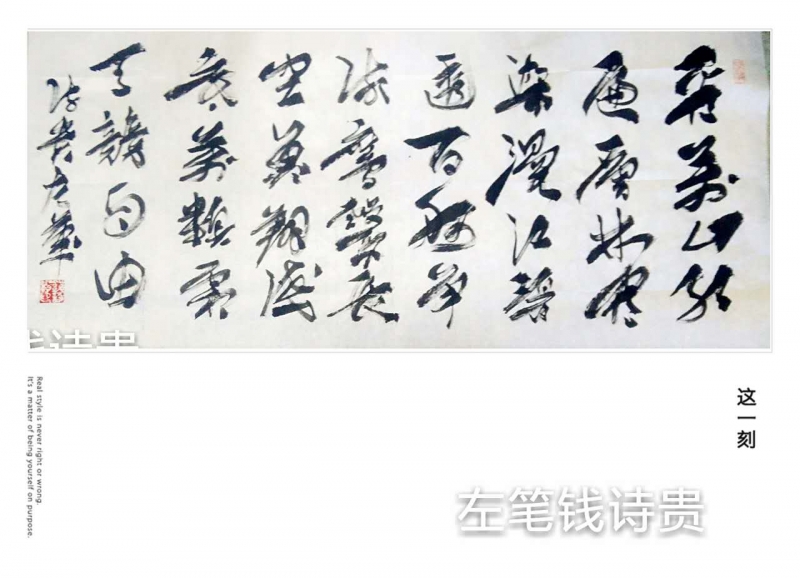 看萬山红
遍層林盡
染漫江碧
透百舸争
流鹰擊長
空魚翔浅
底萬類霜
天競自由
诗贵左筆
诗贵
这一刻
左笔钱诗贵
Real style is never right or wrong.
It's a matter of being yourself on purpose.